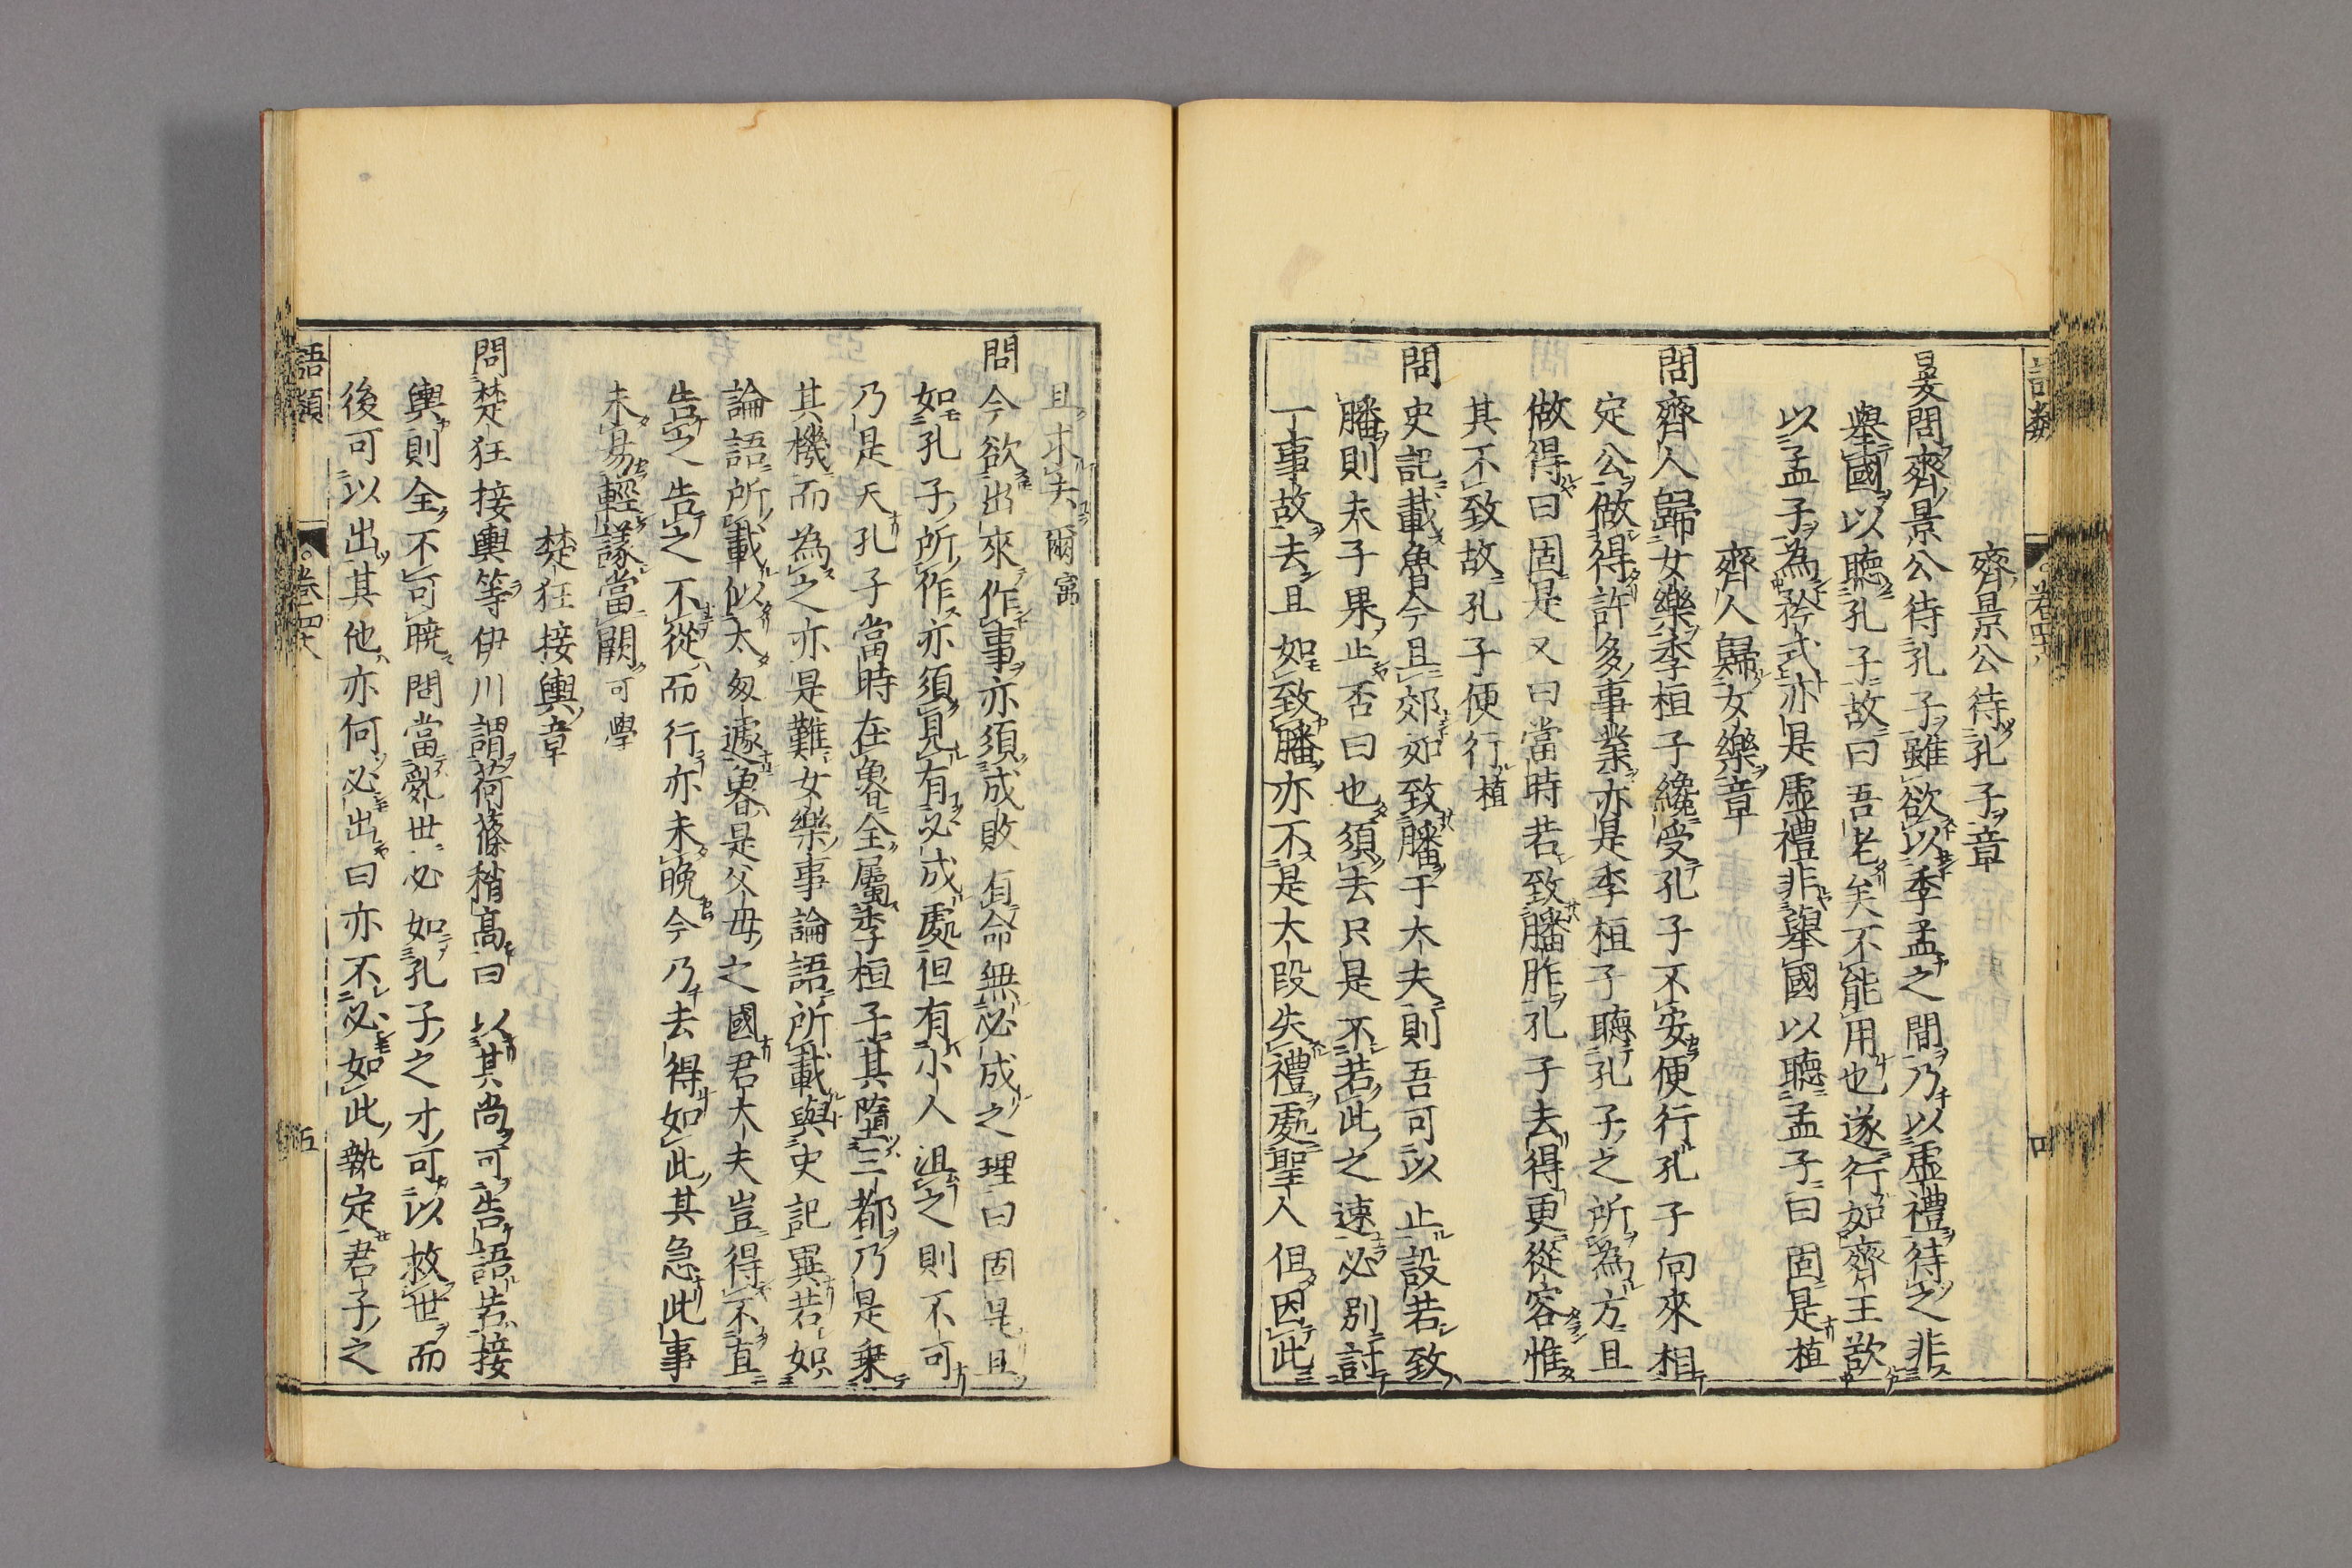 齊景公待孔子章
晏問齊景公待孔子雖欲以季孟之間乃以虛禮待之非
舉國以聽孔子故曰吾老矣不能用也遂行如齊王欲
以孟子為矜式亦是虛禮非舉國以聽孟子曰固是植
齊人歸女樂章
問齊人歸女樂季桓子纔受孔子不安便行孔子向來相
定公做得許多事業亦是李桓子聽孔子之所為方且
做得曰固是又曰當時若致膰胙孔子去得更從容惟
其不致故孔子便行植
問史記載魯今且郊如致膰于大夫則吾可以止設若致
膰則夫子果止否曰也須去只是不若此之速必別討
一事故去且如致膰亦不是大段失禮處聖人但因此
且求去爾㝢
問今欲出來作事亦須成敗有命無必成之理曰固是且
如孔子所作亦須見有必成處但有小人沮之則不可
乃是天孔子當時在魯全屬季桓子其墮三都乃是乗
其機而為之亦是難女樂事論語所載與史記異若如
論語所載似太匆遽魯是父母之國君大夫豈得不直
告之告之不從而行亦未晚今乃去得如此其急此事
未易輕議當闕可學
楚狂接輿章
問楚狂接輿等伊川謂荷蓧稍高曰以其尚可告語若接
輿則全不可曉問當亂世必如孔子之才可以救世而
後可以出其他亦何必出曰亦不必如此執定君子之
語類
卷四十八
五
四